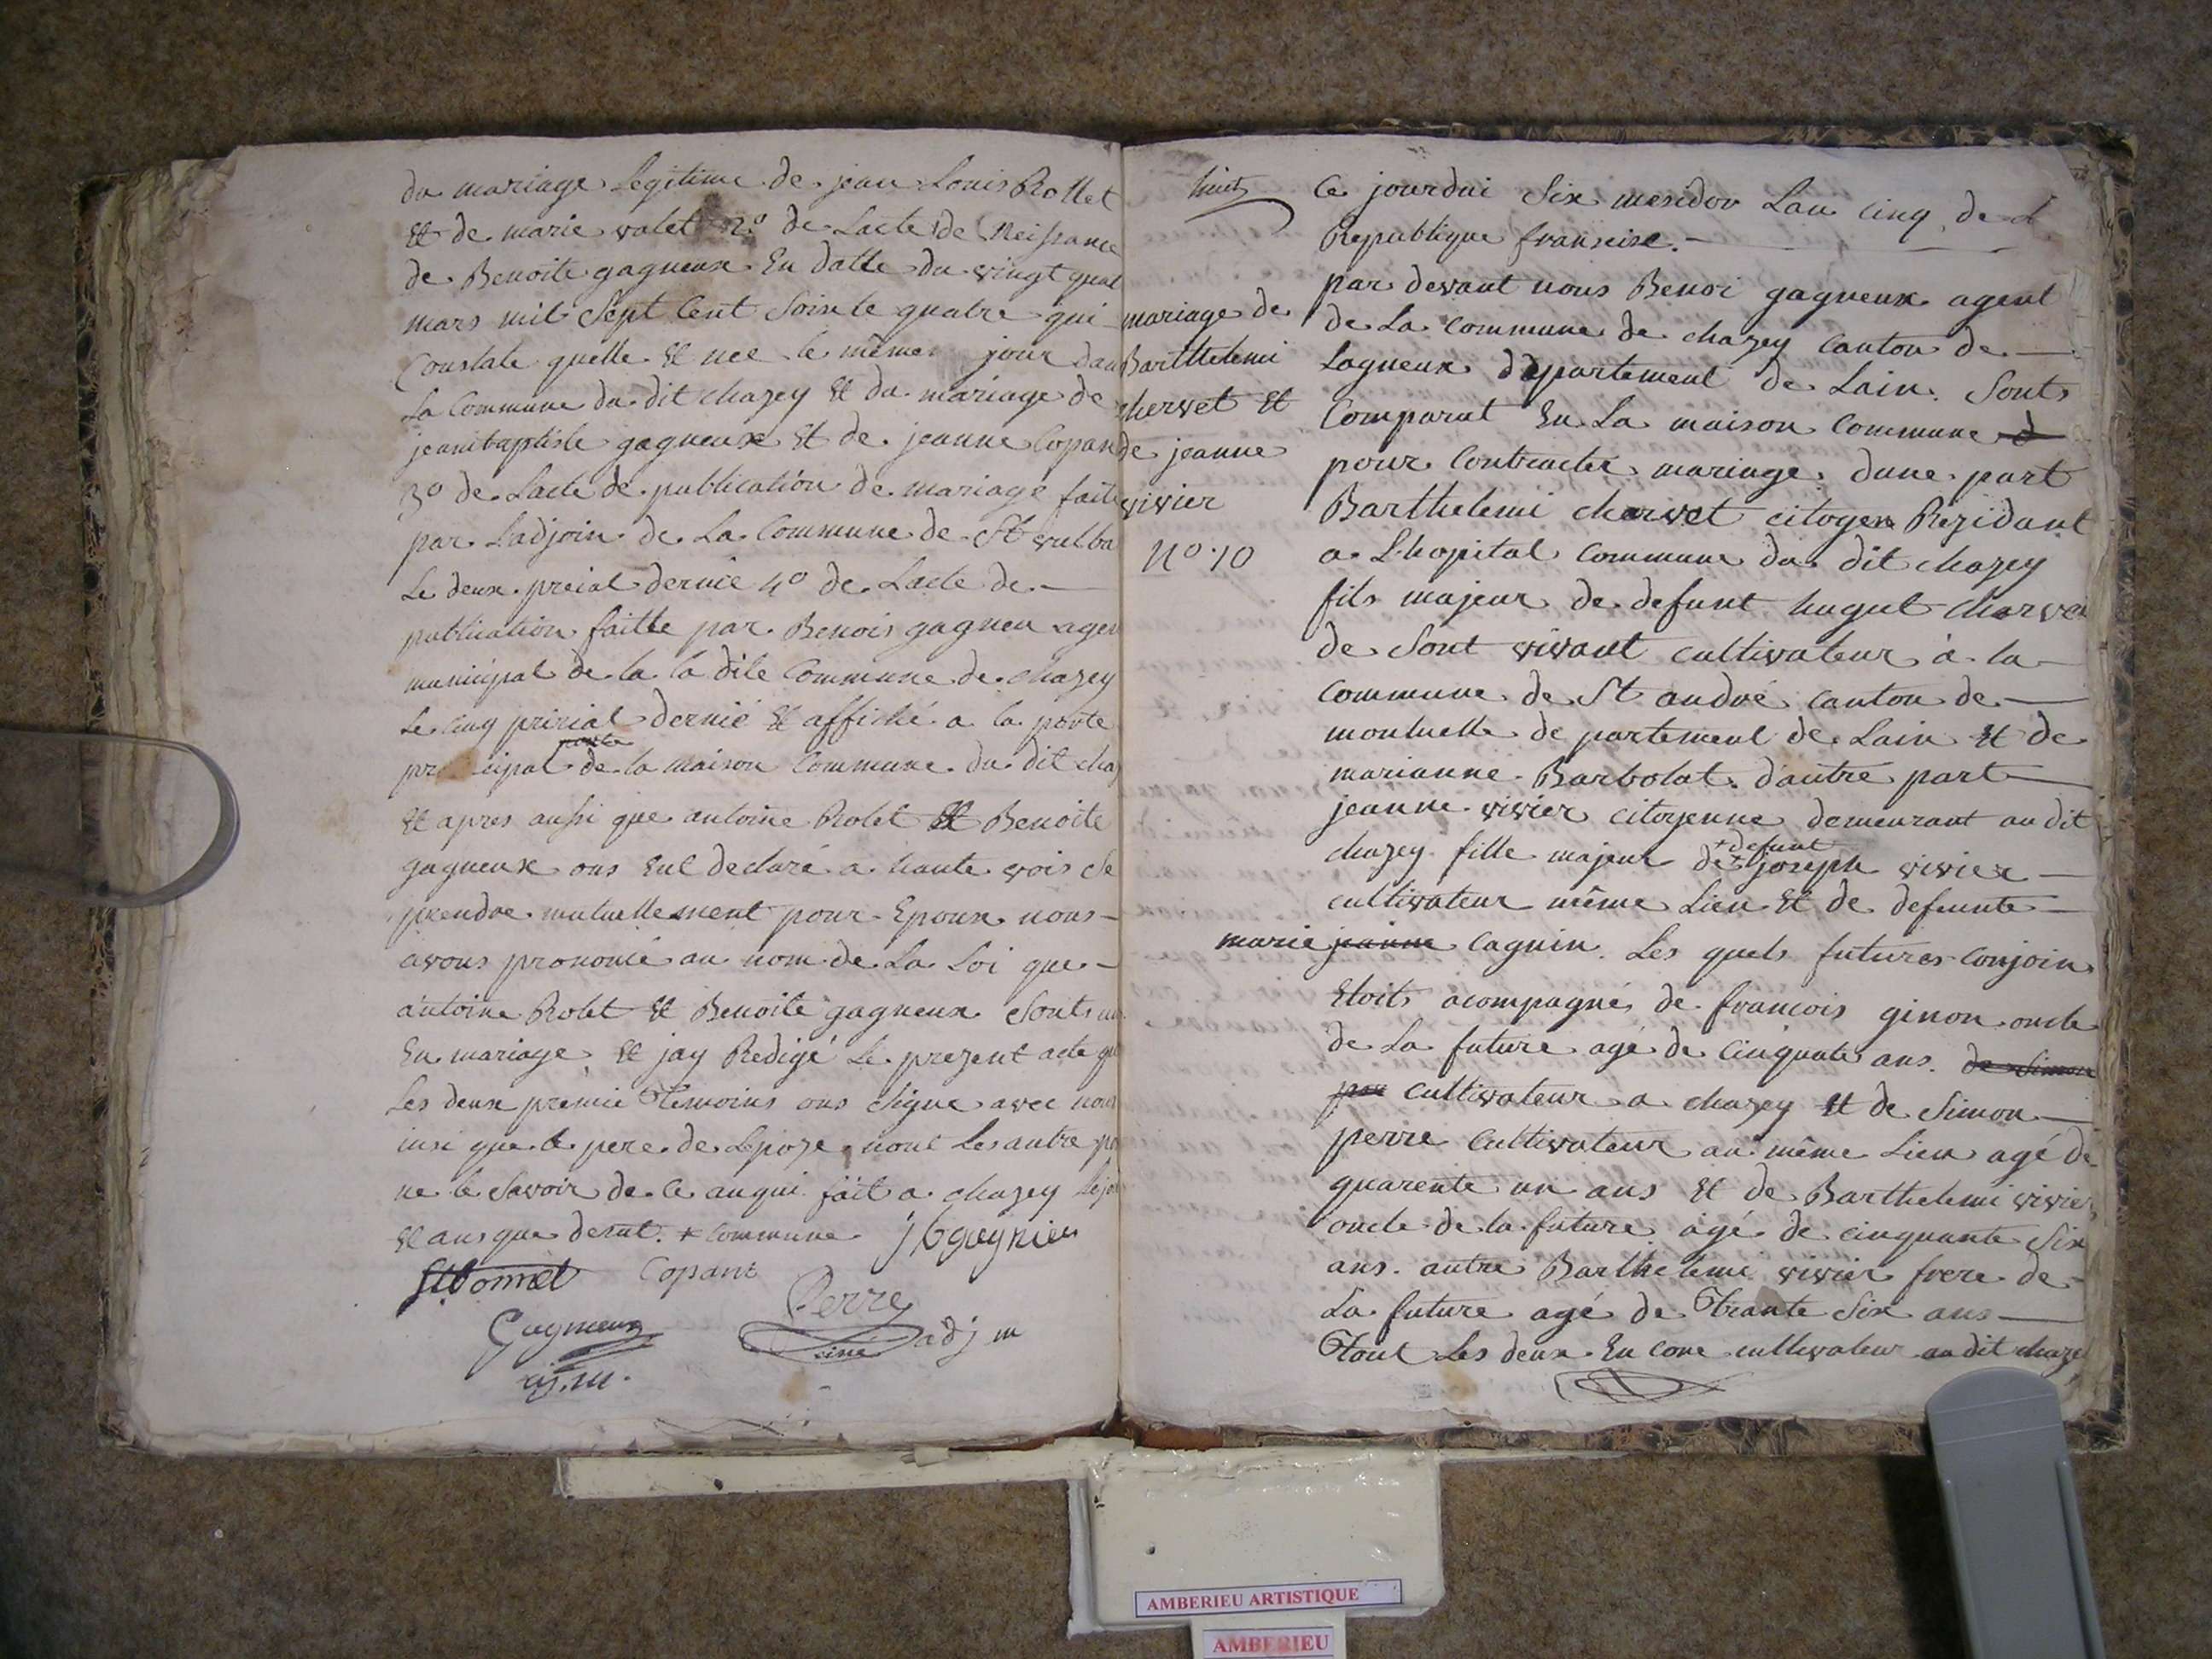 du mariage Legitime de jean Louis Rollet
Et de marie valet 2° de Lacte de Neissance
de Benoite gagneux En datte du vingt quat
mars mil Sept Cent Soixte quatre qui
Constate quelle Et nee le même jour dan
La Commune du dit chazey Et du mariage de
jeanbaptiste gagneux Et de jeanne Copan
3° de Lacte de publication de mariage faite
par Ladjoin de La Commune de St vulba
Le deux preial dernié 4° de Lacte de
publication faitte par Benois gagneu agen
municipal de la la dite Commune de chazey
Le cinq pririal dernié Et affiché a la porte
principal de la maison Commune du dit chaz
Et apres aussi que antoine Rolet Et Benoite
gagneux ons Eut declaré a haute vois Se
prendre mutuellement pour Epoux nous
avons prononcé au nom de La Loi que
antoine Rolet Et Benoite gagneux Sonts un
En mariage Et jay Redigé Le prezent acte qu
Les deux premié Temoins ons Signe avec nous
insi que le pere de Lepoze nont Les autre po
ne le Savoir de ce anqui fait a chazey Lejou
Et ans que desut. + commune j b gagnieu
St bonnet Copant
Gagneux Perre
ainé adj m
aj. m.
huit
mariage de
Barthelemi
chervet Et
de jeanne
vivier
N° 10
Ce jourdui Six mesidor Lan cinq de L
Republique franseise.
par devant nous Benoi gagneux agent
de La commune de chazey Canton de
Lagneux département de Lain. Sonts
Comparut En La maison Commune d
pour Contracter mariage dune part
Barthelemi chervet citoyen Rezidant
a Lhopital commune du dit chazey
fils majeur de defunt hugut charvei
de Sont vivant cultivateur à la
commune de St andré canton de
montuelle de partement de Lain Et de
marianne Barbolat d'autre part
jeanne vivier citoyenne demeurant au dit
chazey fille majeur de + defunt joseph vivier
cultivateur même Lieu Et de defunte
marie jeanne cagnin. Les quels futures conjoin
Etoits acompagné de francois ginon oncle
de La future agé de Cinquate ans. de Simon
per cultivateur a chazey Et de Simon
perre cultivateur au même Lieu agé de
quarente un ans Et de Barthelemi vivier
oncle de la future agé de cinquante Six
ans. autre Barthelemi vivier frere de
La future agé de Trante Six ans
Tout Les deux En core cultivateur au dit chaze
AMBERIEU ARTISTIQUE
AMBERIEU